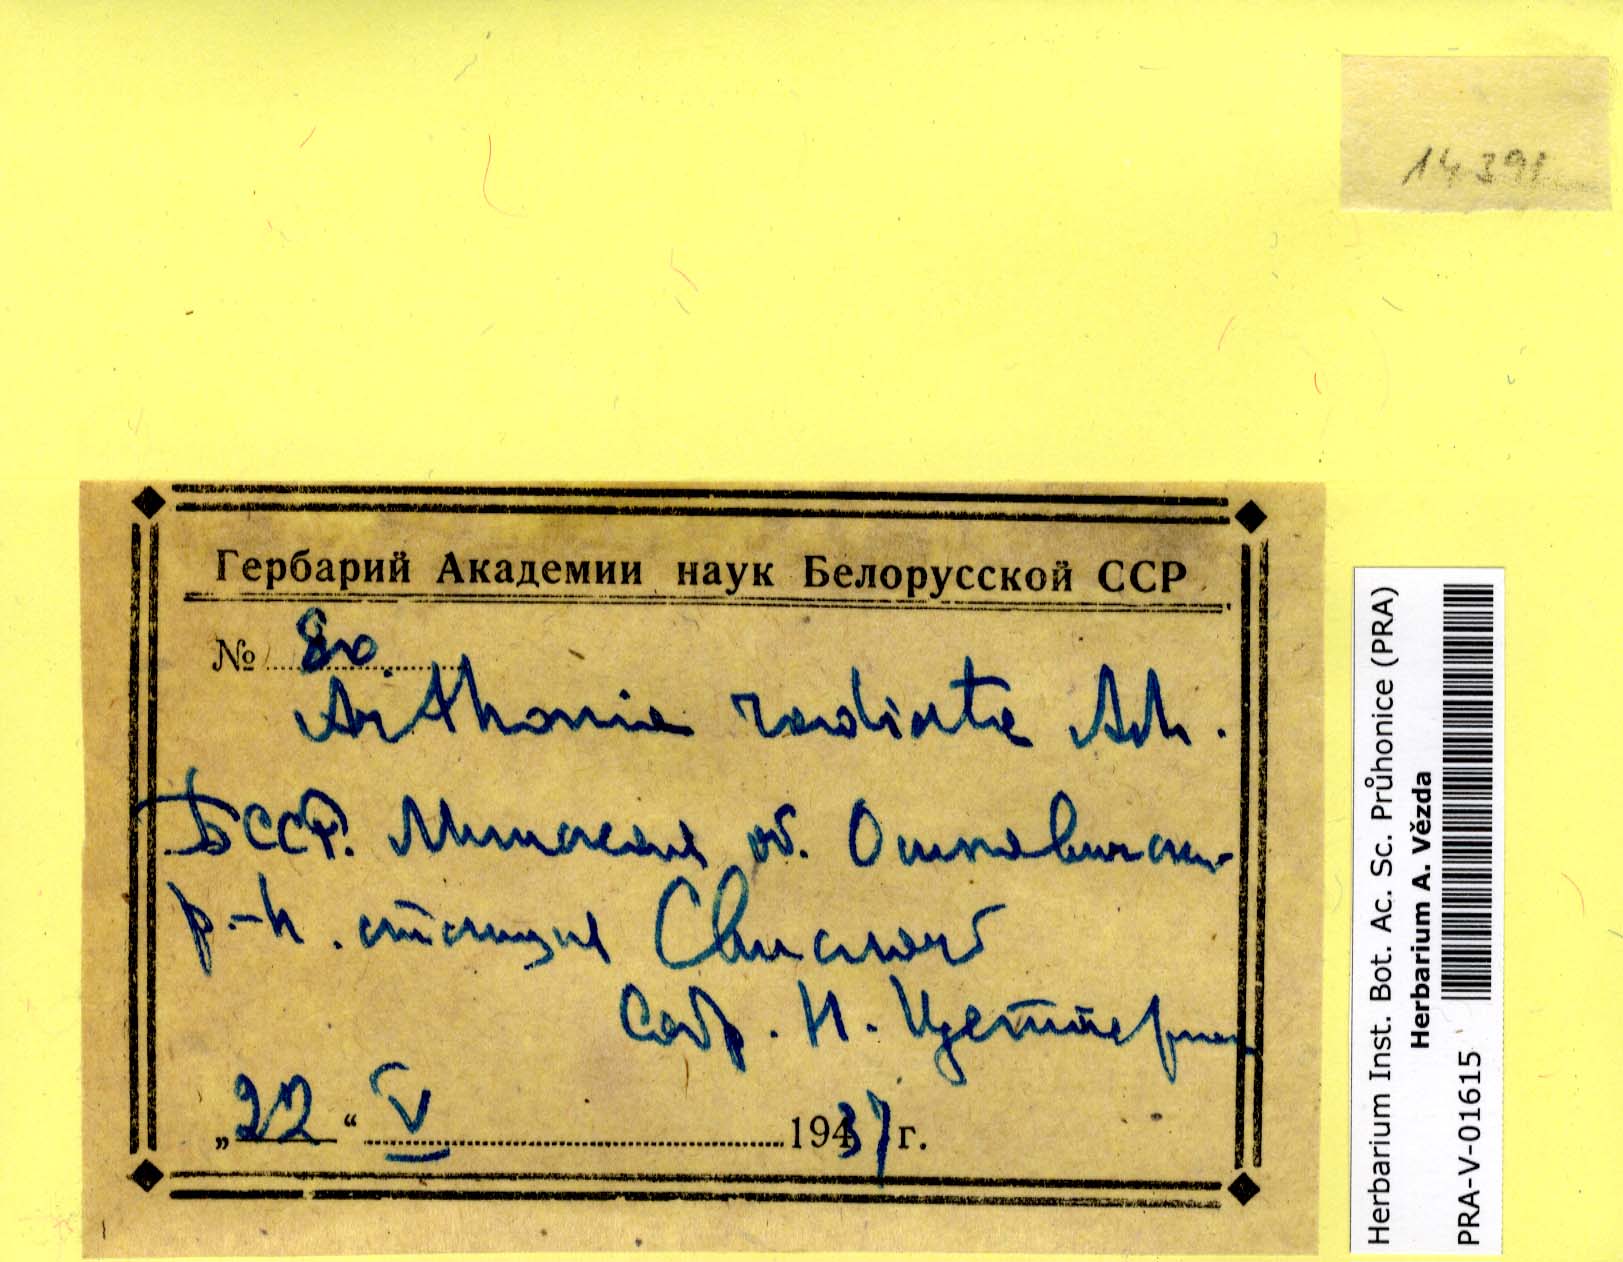 14391
Гербарий Академии наук Белорусской ССР
№ 80
Arthonia radiata Ach.
БССР. Минская об. Осиповичски-
р-н. станция Свислочь
Собр. Н. Цеттерман
„22“ V 1937 г.
Herbarium Inst. Bot. Ac. Sc. Průhonice (PRA)
Herbarium A. Vězda
PRA-V-01615